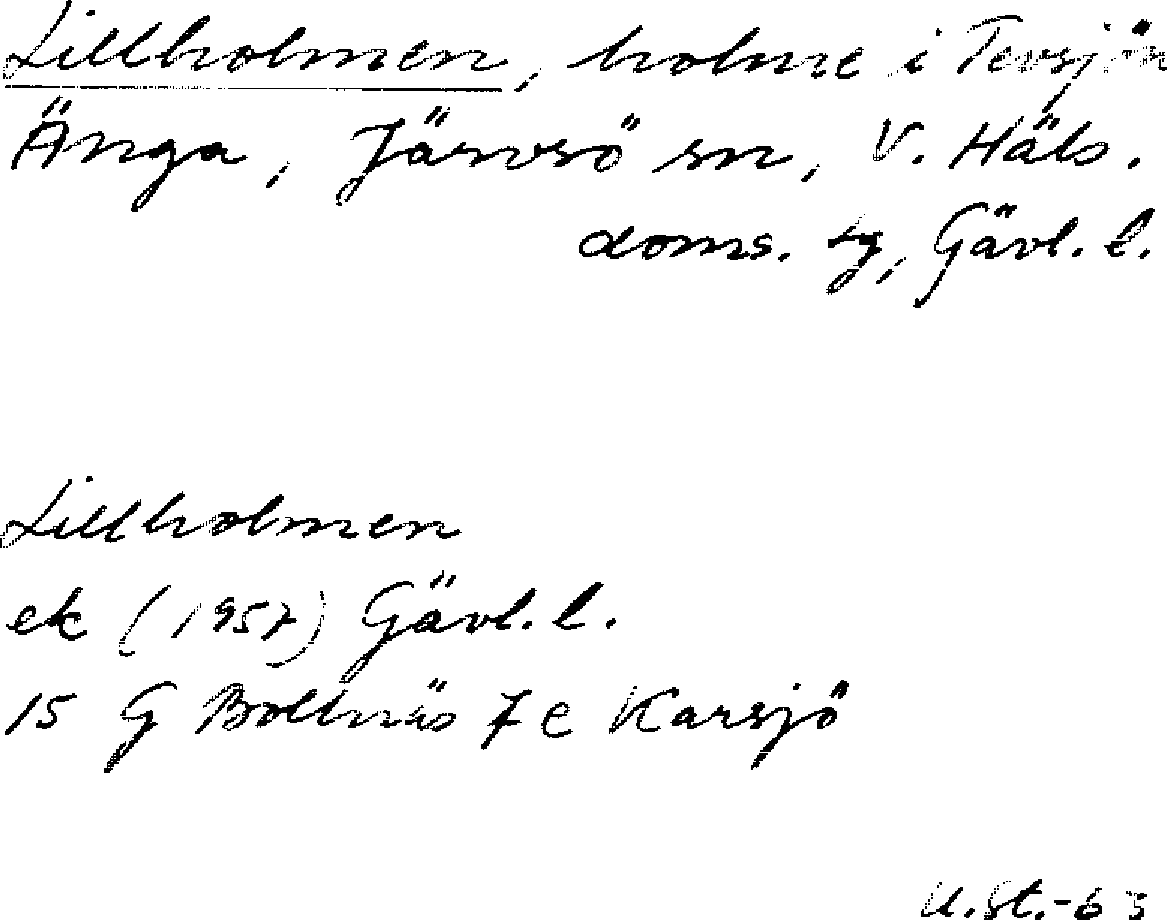 Lillholmen, holme i Tevsjön
Änga, Järvsö sn, V. Häls.
doms. tg, Gävl. l.
Lillholmen
ek (1957) Gävl. l.
15 G Bollnäs 7 e Karsjö
U.St.-63